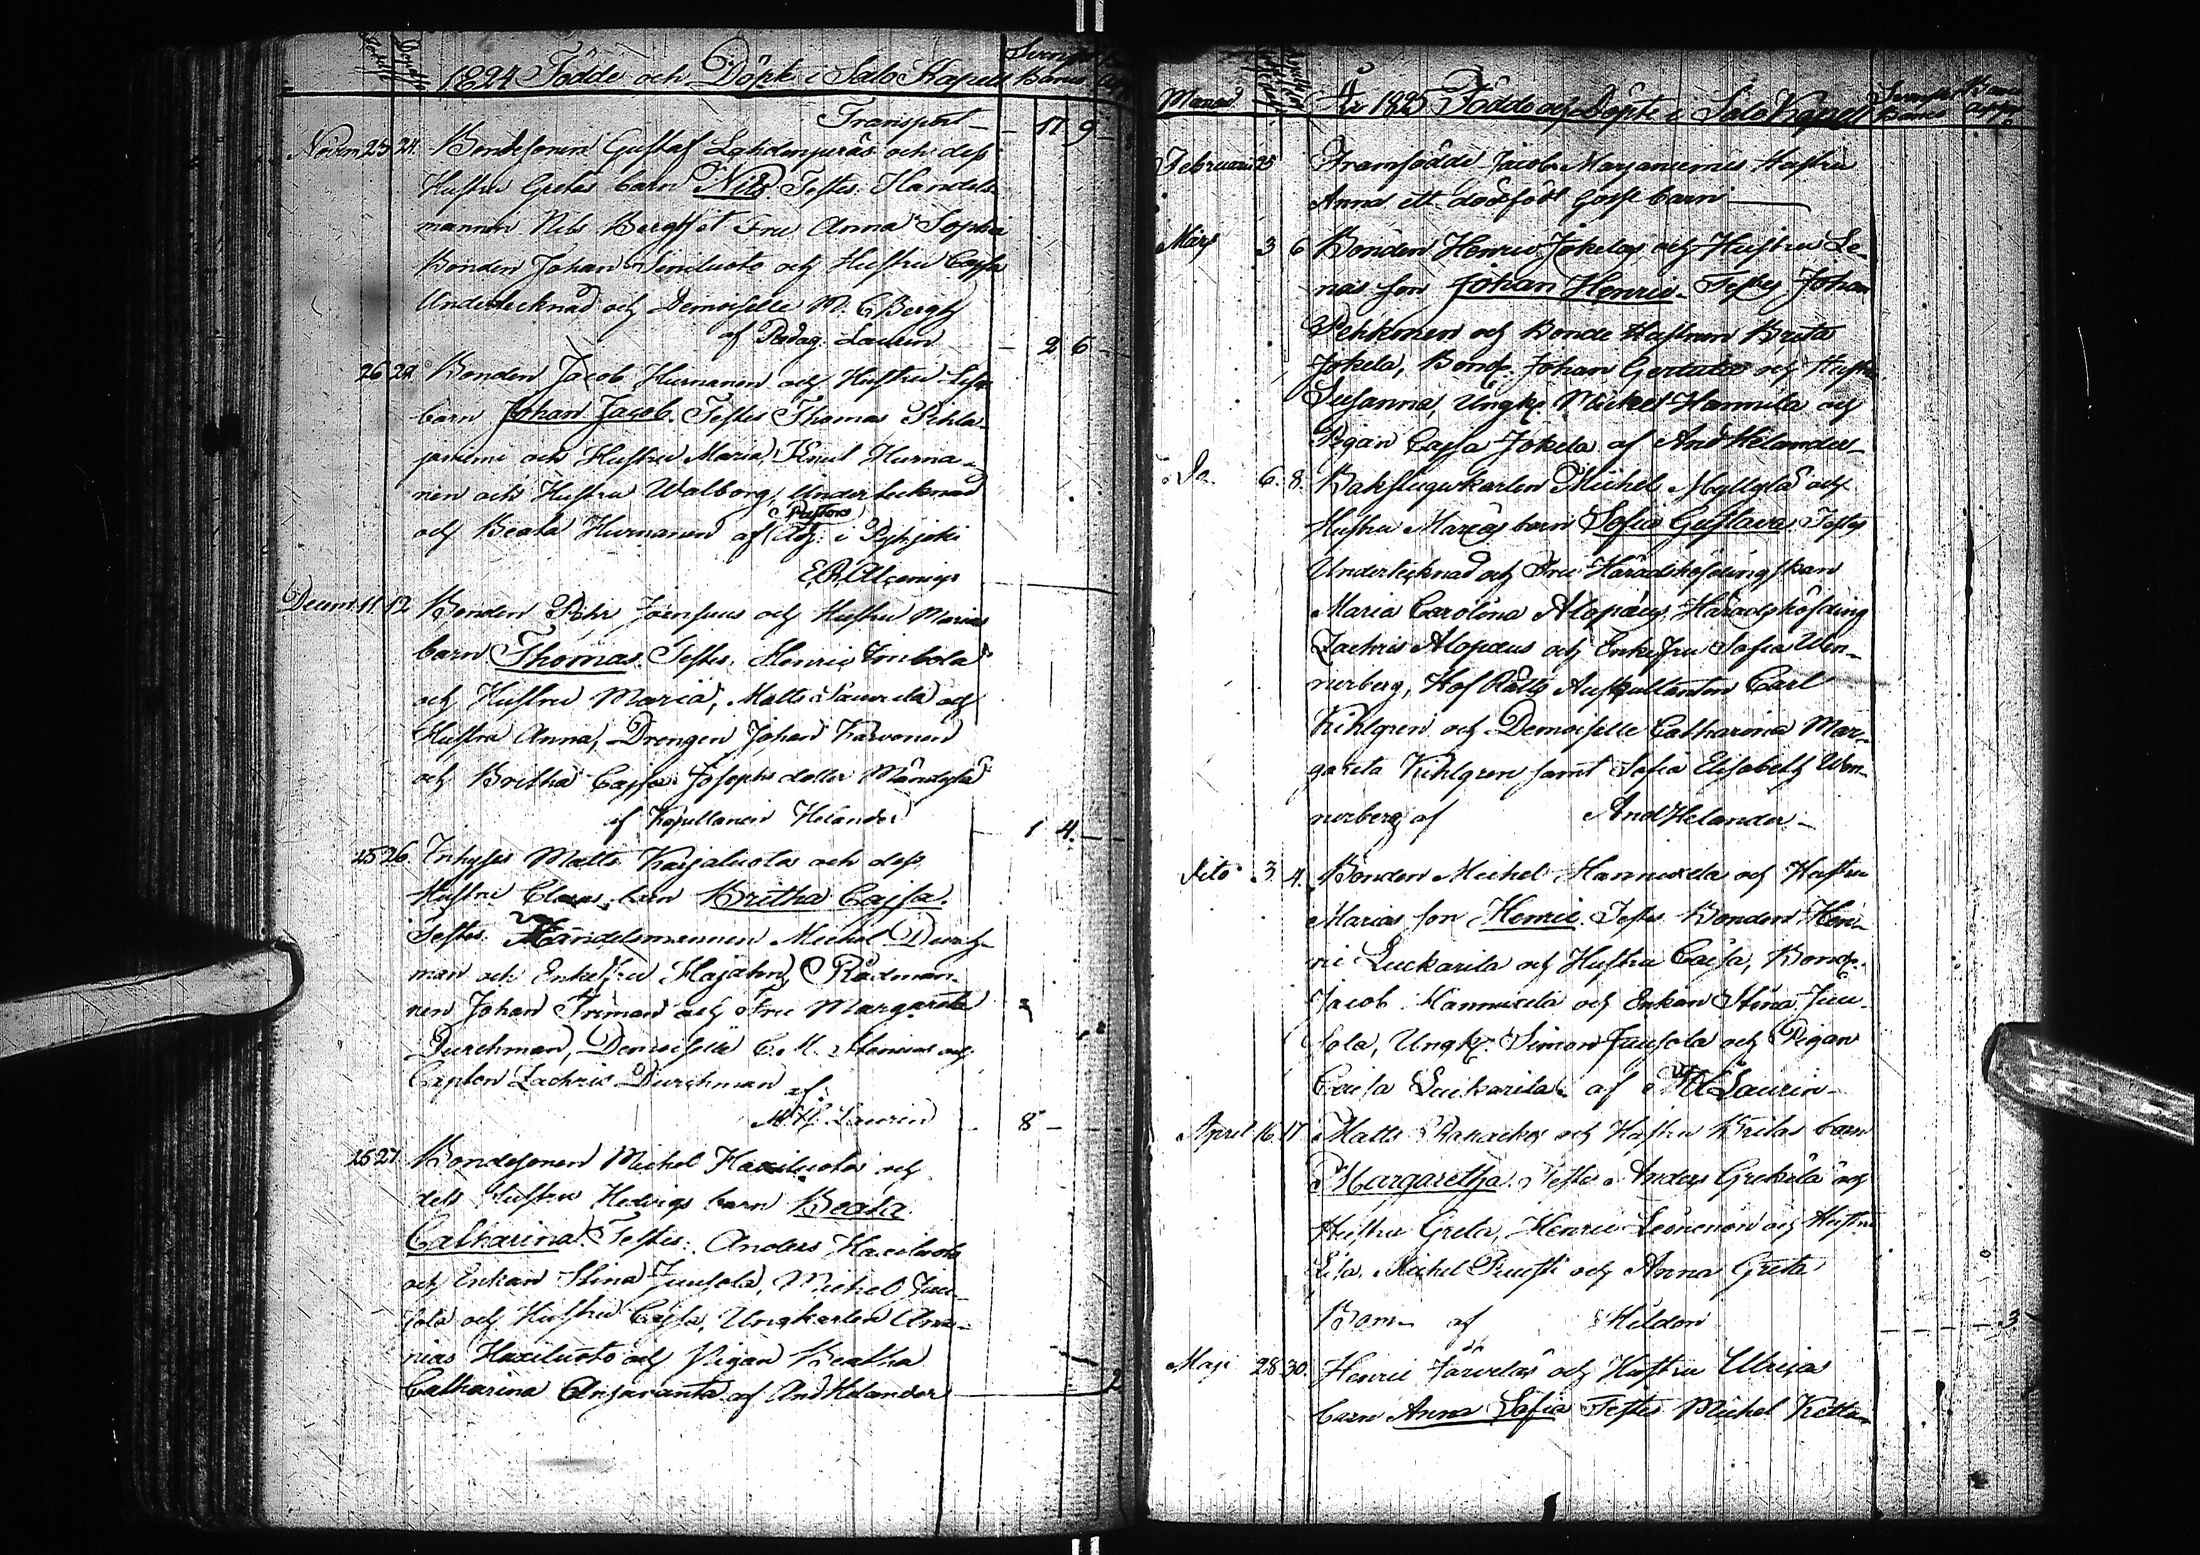 1824 Födde och Döpte i Salo Kapell
Transport — 17 9
Novem 23 24 Bondesonen Gustaf Lahdenperäs och dess
Hustru Gretas barn Nils. Testes. Handels-
mannen Nils Bergh et Fru Anna Sophia
Bonden Johan Siniluoto och Hustru Cajsa
Undertecknad och Demoiselle M. C Bergh
af Pædag. Laurin — 2 6
26 29 Bonden Jacob Hurnanen och Hustru Lisas
barn Johan Jacob. Testes Thomas Pihla-
janiemi och Hustru Maria, Knut Hurna-
nen och Hustru Walborg, Undertecknad
och Beata Hurnanen af Pastors Adj. i Pyhäjoki

Decem 11 12 Bonden Pehr Joensuus och Hustru Marias
barn Thomas. Testes. Henric
och Hustru Maria, Matts och
Hustru Anna, Drengen Johan Karvonen
och Britha Cajsa Josephs dotter Mändylä
af Kapellanen Helander — 1 4 —
25 26 Inhyses Matts Karjaluotos och dess
Hustru Claras barn Britha Cajsa.
Testes. Handelsmannen Michel Durch-
man och Enkefru Hajahn, Rådman-
nen Johan Friman och Fru Margareta
Durchman, Demoiselle C. M. och
Capten Zachris Durchman
af
M. H. Laurin — 8 —
26 27 Bondesonen Michel Haxiluotos och
dess Hustru Hedvigs barn Beata
Catharina. Testes. Anders Haxiluoto
och Enkan Stina Juusola, Michel Juu-
sola och Hustru Cajsa, Ungkarlen Ana-
nias Haxiluoto och Pigan Beatha
Catharina Anjaranta af And Helander — 2
Månad År 1825 Födde och Döpte i Salo Kapell
Februari 25 Framfödde Jacob Marjaniemis Hustru
Anna ett dödfödt Gosse barn —
Mars 3 6 Bonden Henric Jokelas och Hustru Le-
nas son Johan Henric. Testes Johan
Pehkonen och Bonde Hustrun Brita
Jokela, Bond. Johan Gertula och Hustru
Susanna, Ungk. Mickel Hannila och
Pigan Cajsa Jokela af And Helander
Do 6. 8. Båksfugukarlen Michel Myllyläs och
Hustru Marias barn Sofia Gustava. Testes
Undertecknad och Fru Häradshöfdingskan
Maria Carolina Alopæus, Häradshöfding
Zachris Alopæus och Enkefru Sofia Wen-
nerberg, Hof Rätts Auskultanten Carl
Kihlgren och Demoiselle Catharina Mar-
gareta Kihlgren samt Sofia Elisabeth Wen-
nerberg af And Helander —
Dito 3. 4. Bonden Michel Hannuxela och Hustru
Marias son Henric. Testes Bonden Hen-
ric Luckarila och Hustru Caisa, Bond.
Jacob Hannuxela och Enkan Stina Juu-
sola, Ungk. Simon Juusola och Pigan
Caisa Luckarila af M H Laurin
April 16. 17 Matts och Hustru Britas barn
Margaretha. Testes Anders Grekelä och
Hustru Greta, Henric Leinonen och Hustru
Lisa, Michel Ruusti och Anna Greta
Bom af Hildén — 3
Maji 28 30. Henric Järveläs och Hustru Ulricas
barn Anna Sofia Testes Michel Ketta-